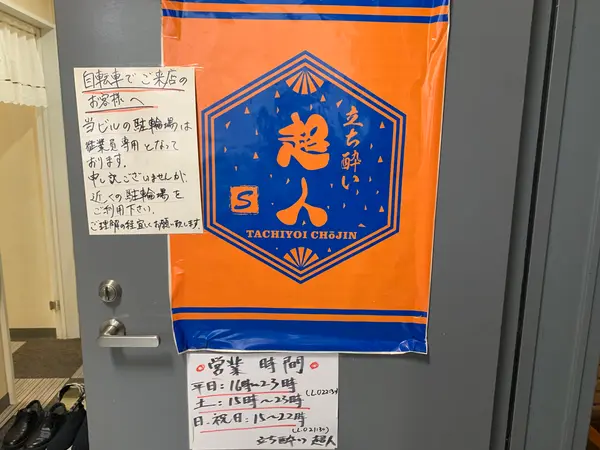 自転車でご来店の
お客様へ
当ビルの駐輪場は
従業員専用となって
おります。
申し訳ございませんが、
近くの駐輪場を
ご利用下さい。
ご理解の程宜しくお願い致します。
立ち酔い
超人
S
TACHIYOI CHōJIN
営業時間
平日：16時〜23時
(L.O22:30)
土：15時〜23時
日・祝日：15〜22時
(L.O21:30)
立ち酔い 超人